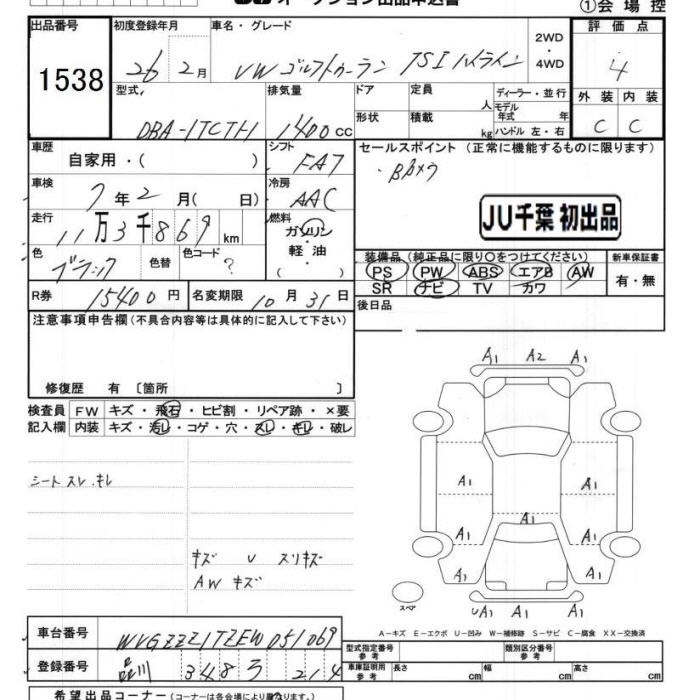 オークション出品申込書 ①会場控
出品番号 初度登録年月 車名・グレード 2WD ・ 4WD 評価点
1538 26 2月 VW ゴルフトゥーラン TSI ハイライン 4
型式 排気量 ドア 定員 人 ディーラー・並行 外装 内装
DBA-1TCTH 1400cc 形状 積載 kg モデル年式 年 ハンドル 左・右 C C
車歴 自家用・( ) シフト FA7 セールスポイント (正常に機能するものに限ります)
車検 7年2月( 日) 冷房 AAC
走行 11万3千869km 燃料 ガソリン 軽・油 ( )
JU千葉 初出品
色 ブラック 色替 色コード ?
装備品 (純正品に限り〇をつけてください) 新車保証書
PS PW ABS エアB AW 有・無
SR ナビ TV カワ
R券 15400円 名変期限 10月31日 後日品
注意事項申告欄(不具合内容等は具体的に記入して下さい)
修復歴 有 〔箇所 〕
検査員 FW キズ・飛石・ヒビ割・リペア跡・×要
記入欄 内装 キズ・汚レ・コゲ・穴・スレ・キレ・破レ
A1 A2 A1
シート スレ、キレ
A1 A1
A1
A1 A1
キズ U スリキズ
AW キズ
A1 A1
スペア
UA1 A1 A1
A-キズ E-エクボ U-凹み W-補修跡 S-サビ C-腐食 XX-交換済
車台番号 WVGZZZ1TZEW051069
型式指定番号 類別区分番号
登録番号 品川 348 ろ 214
車庫証明用参考 長さ cm 幅 cm 高さ cm
希望出品コーナー(コーナーは各会場により異なります。)